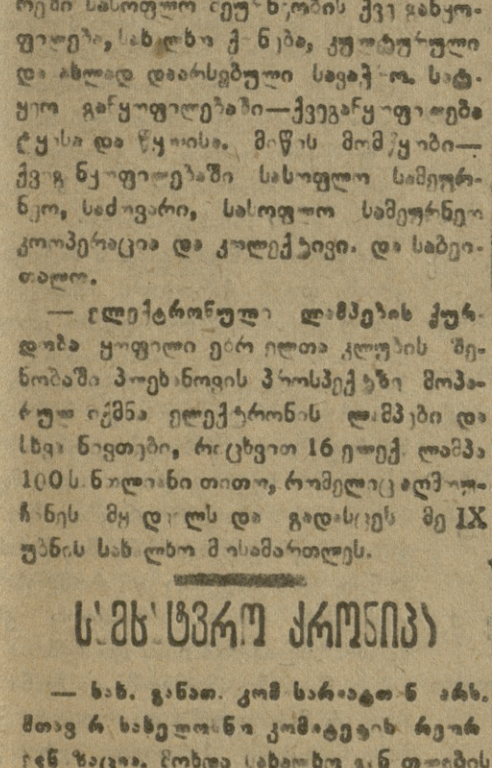 სასოფლო ქვე განყო-
ფილება, სახალხო ქონება, კულტურული
და ახლად დაარსებული სავაჭრო სატ-
ყეო განყოფილებაში—ქვეგანყოფილება
ტყისა და წყლისა. მიწის მომწყობი—
ქვეგანყოფილებაში სასოფლო სამეურ-
ნეო, საძოვარი, სასოფლო სამეურნეო
კოოპერაცია და კოლექტივი. და საბეი-
თალო.
— ელექტრონული ლამპების ქურ-
დობა ყოფილი ებრაელთა კლუბის შე-
ნობაში პლეხანოვის პროსპექტზე მოპა-
რულ იქმნა ელექტრონის ლამპები და
სხვა ნივთები, რიცხვით 16 ელექ. ლამპა
100 ს. ნთლიანი თითო, რომელიც აღმოუ-
ჩინეს მყიდველს და გადასცეს მე IX
უბნის სახალხო მოსამართლეს.
სამხატვრო ქრონიკა
— სახ. განათ. კომისარიატთან არს.
მთავარ სახელოსნო კომიტეტის რეორ